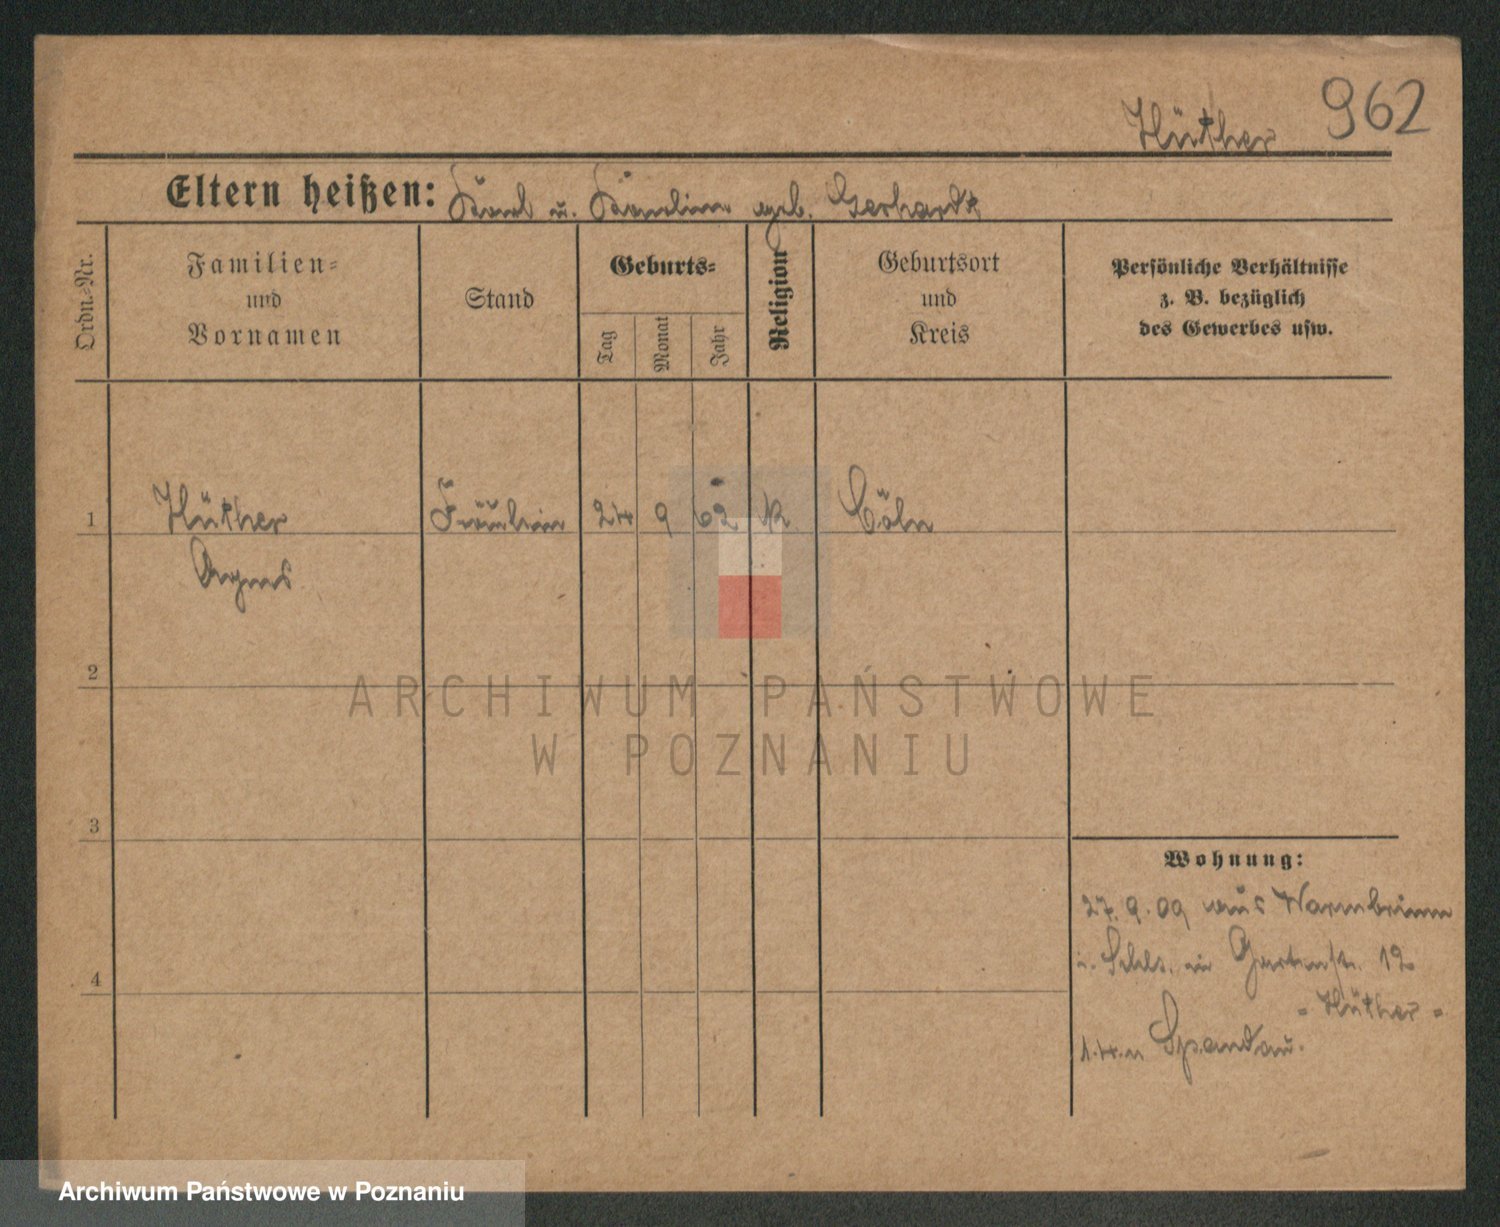 Hüther 962
Eltern heißen: Karl u. Karoline geb. Gerhardt
Ordn.-Nr.
Familien-
und
Vornamen
Stand
Geburts-
Tag
Monat
Jahr
Religion
Geburtsort
und
Kreis
Persönliche Verhältnisse
z. B. bezüglich
des Gewerbes usw.
1 Hüther Fräulein 24 9 62 k Cöln
Agnes
2
ARCHIWUM PAŃSTWOWE
W POZNANIU
3
Wohnung:
27.9.09 aus Warmbrunn
i. Schls. in Gartenstr. 12
- Hüther -
4
1.4.11 Spandau.
Archiwum Państwowe w Poznaniu